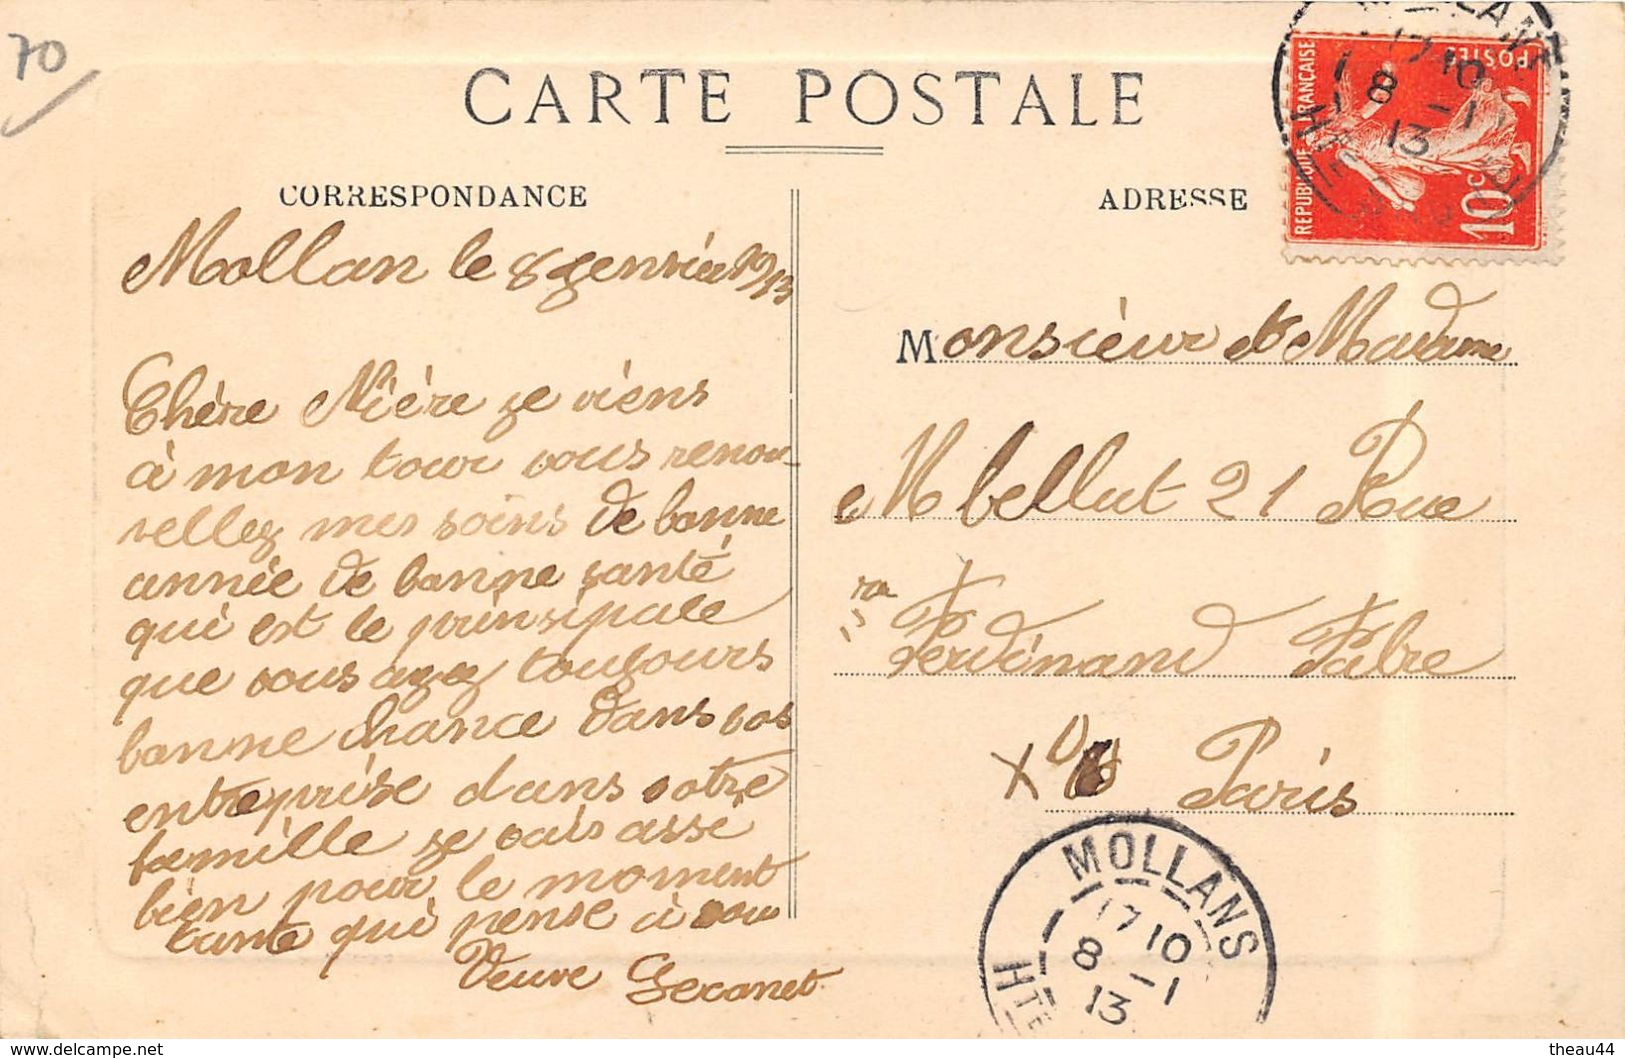 70
CARTE POSTALE
CORRESPONDANCE
Mollan le 8 genviée 1913
Chère Niè​re ge viens
à mon tour vous renou
vellez mes soins de bonne
année de bonne santé
qui est le prinsipale
que vous ayez tougours
bonne chance dans vos
entreprise dans votre
famille ge vais assé
bien pour le moment
tante qui pense à vous
Veuve Gecanet
ADRESSE
REPUBLIQUE FRANÇAISE
POSTES
10c
MOLLANS
17 10
8 -1
13
HTE
Monsieur et Madame
Mbellut 21 Rue
Ferdinand Fabre
Paris
MOLLANS
17 10
8 -1
13
HTE
www.delcampe.net
theau44